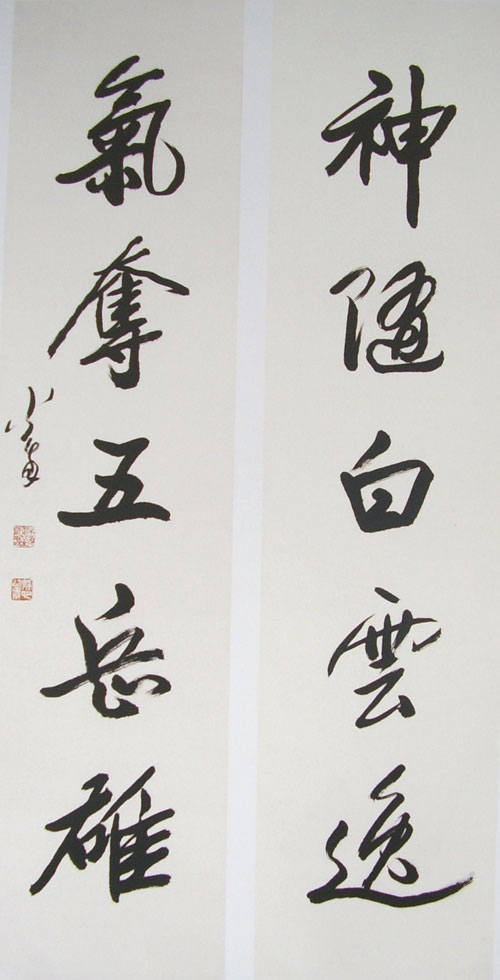 神隨白雲逸
氣奪五岳雄